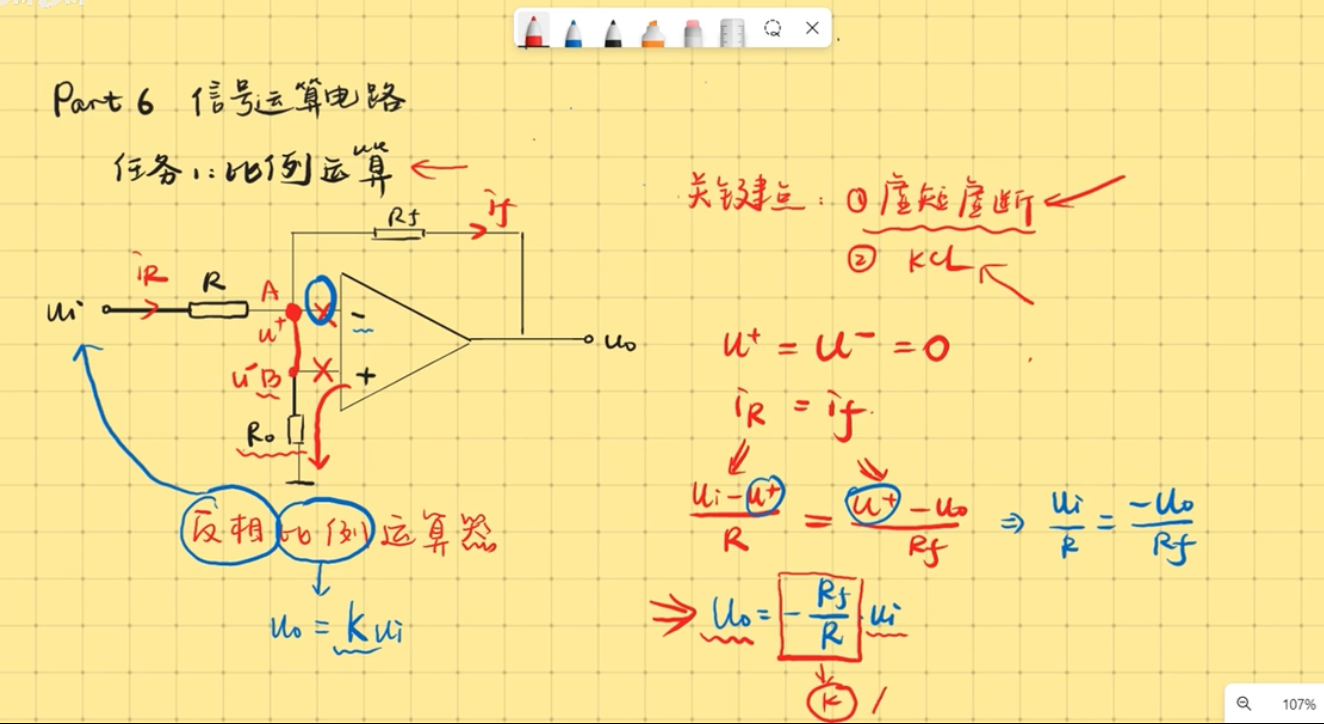 Part 6 信号运算电路
任务1:比例运算
Rf
if
iR
R
A
ui
u⁺
-
u⁻ B
+
uo
Ro
反相比例运算器
uo = K ui
关键点: ① 虚短虚断
② KCL
u⁺ = u⁻ = 0
iR = if
(ui - u⁺)/R = (u⁺ - uo)/Rf ⇒ ui/R = -uo/Rf
⇒ uo = -Rf/R · ui
K
107%